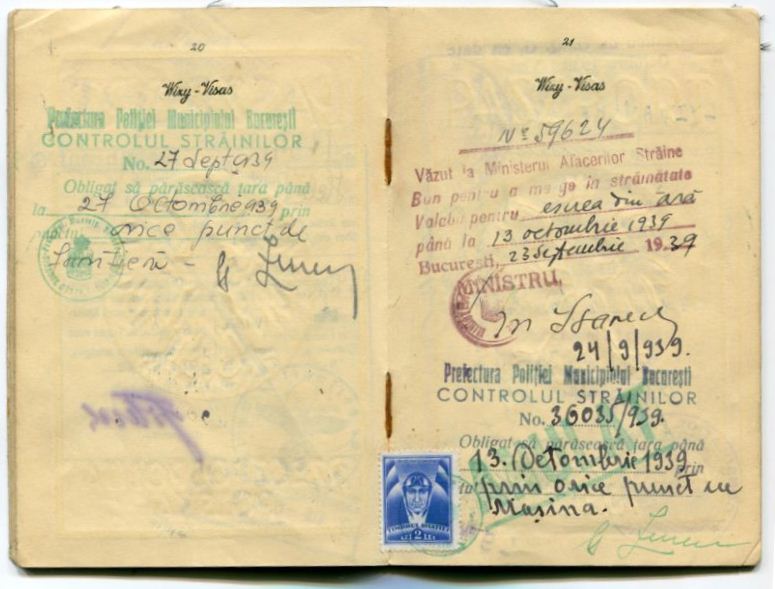 20
Wizy - Visas
Prefectura Poliției Municipiului București
CONTROLUL STRĂINILOR
No. 27 Sept 939
Obligat să părăsească țara până
la 27 Octombrie 939 prin
punctul orice punct de
frontieră -
21
Wizy - Visas
Nº 59624
Văzut la Ministerul Afacerilor Străine
Bun pentru a merge în străinătate
Valabil pentru eșirea din țară
până la 13 octombrie 1939
București, 23 Septembrie 1939
MINISTRU,
24/9/939.
Prefectura Poliției Municipiului București
CONTROLUL STRĂINILOR
No. 36035/939.
Obligat să părăsească țara până
13. Octombrie 1939 prin
prin orice punct cu
Mașina.
TIMBRUL AVIAȚIEI
2 LEI